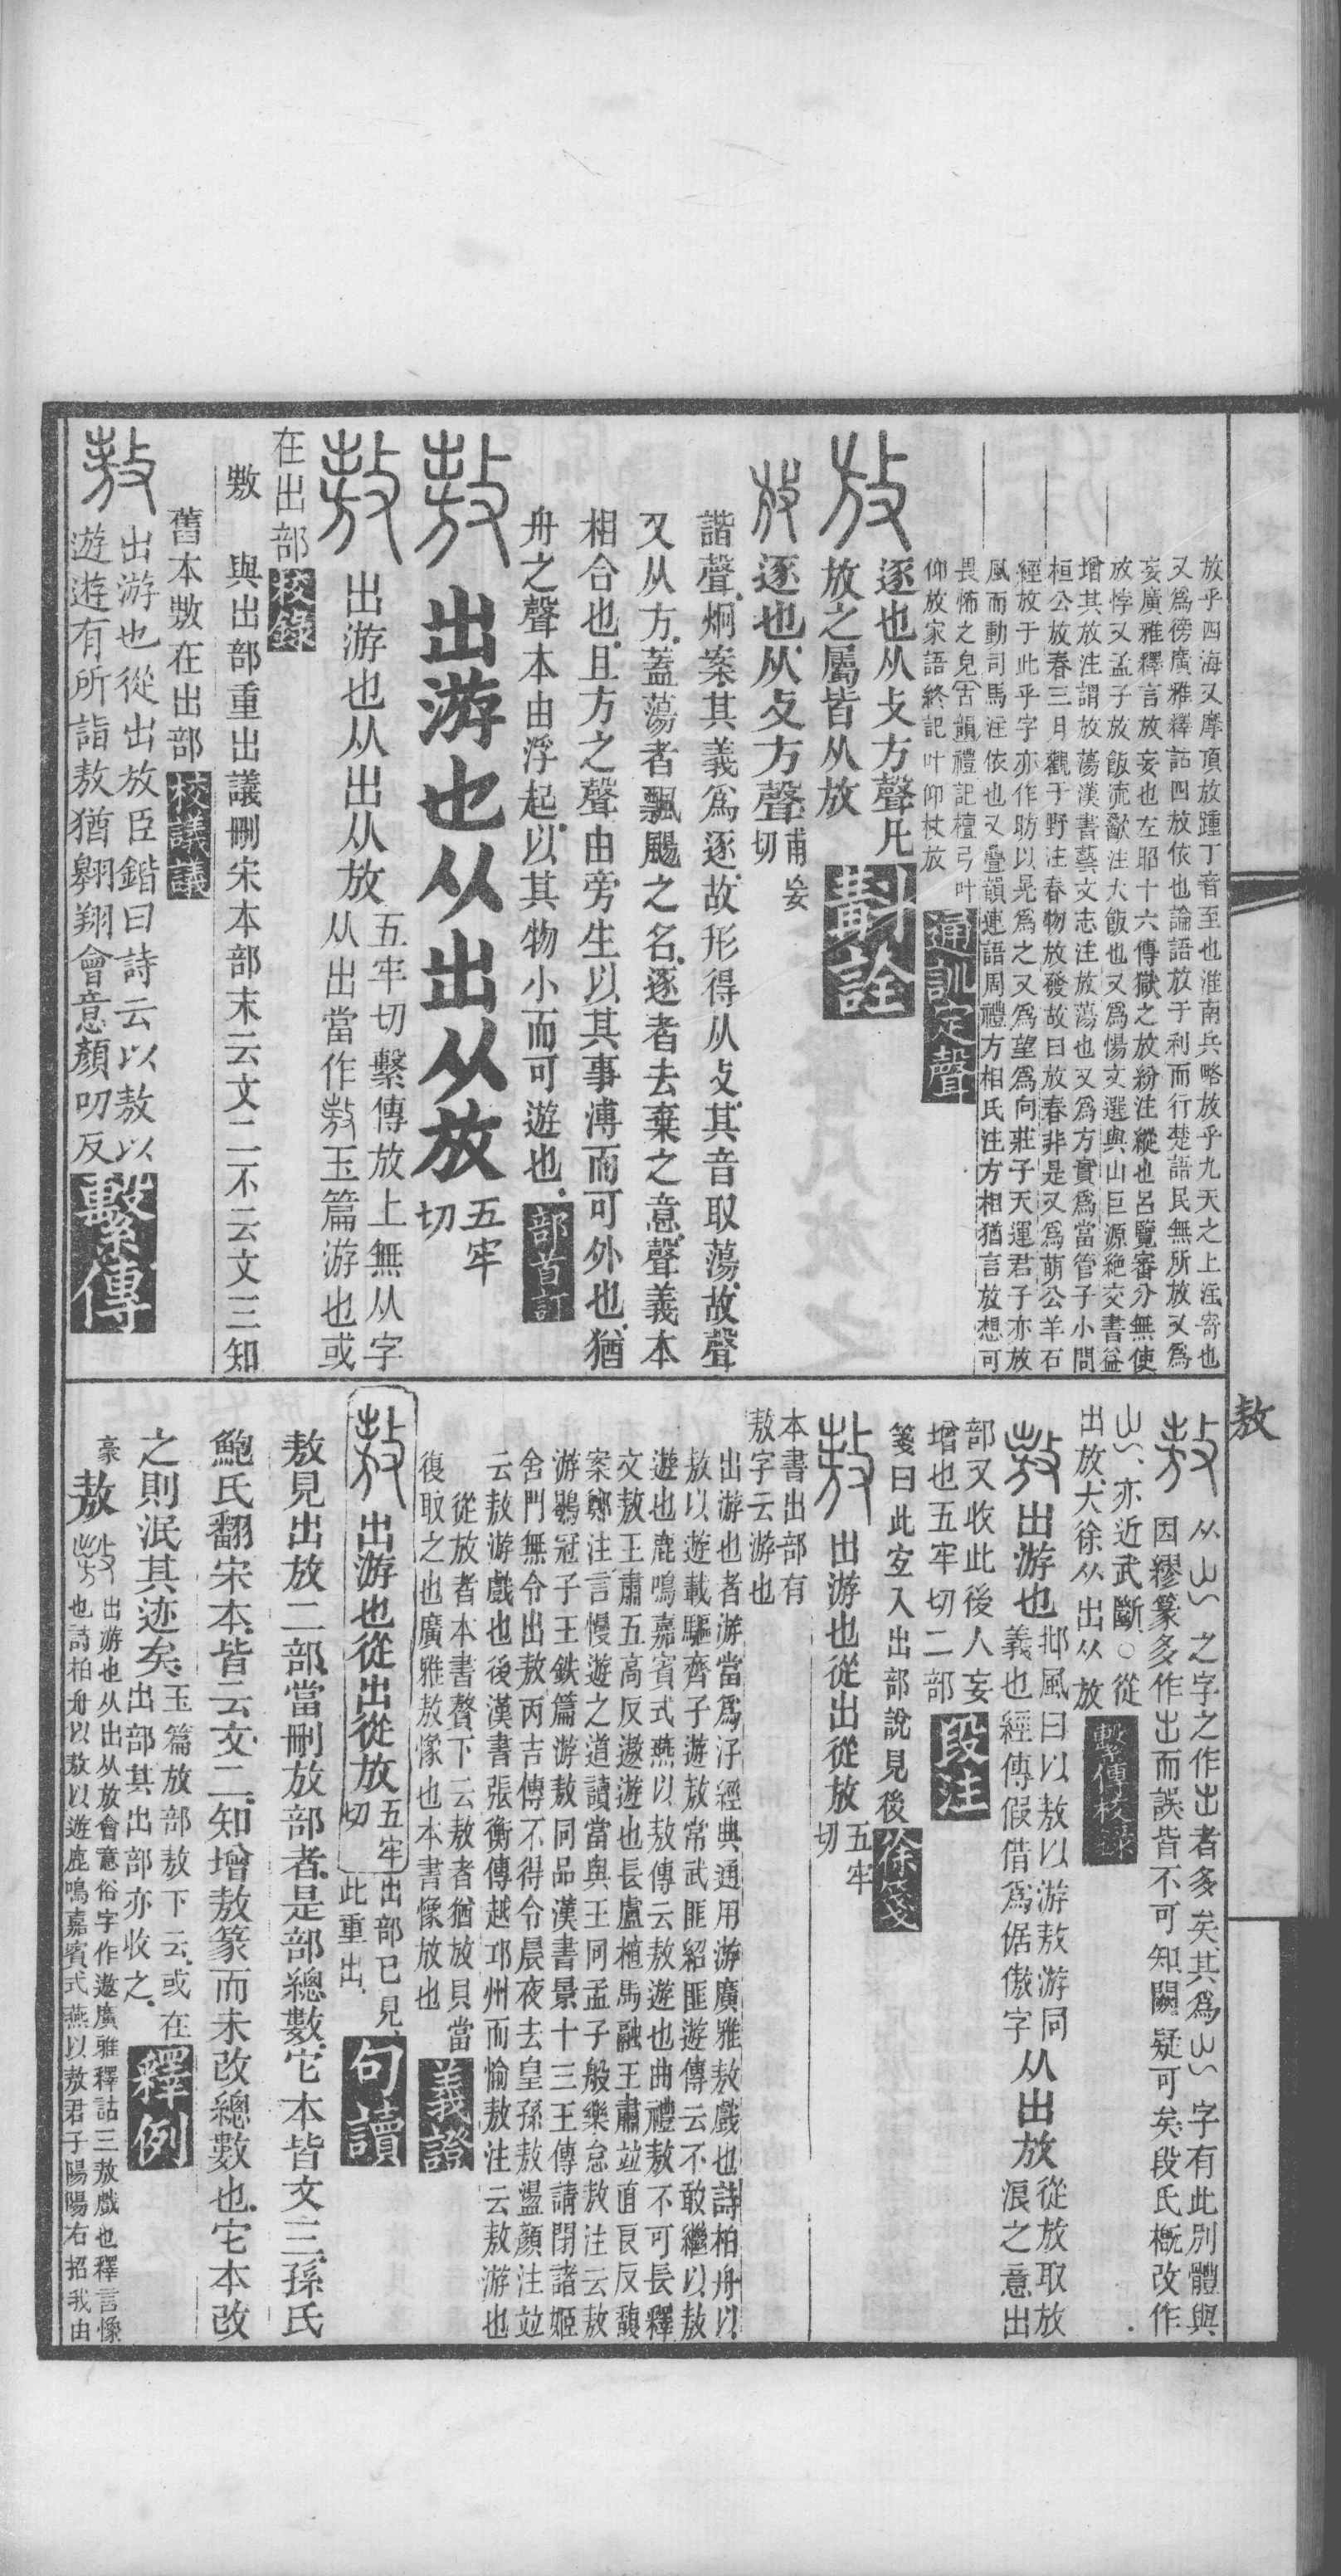 放乎四海又摩頂放踵丁音至也淮南兵略放乎九天之上注寄也
又爲徬廣雅釋詁四放依也論語放于利而行楚語民無所放又爲
妄廣雅釋言放妄也左昭十六傳獄之放紛注縱也呂覽審分無使
放悖又孟子放飯流歠注大飯也又爲惕文選與山巨源絶交書益
增其放注謂放蕩漢書藝文志注放蕩也又爲方實爲當管子小問
桓公放春三月觀于野注春物放發故曰放春非是又爲萌公羊石
經放于此乎字亦作昉以晃爲之又爲望爲向莊子天運君子亦放
風而動司馬注依也又疊韻連語周禮方相氏注方相猶言放想可
畏怖之皃古韻禮記檀弓叶
仰放家語終記叶仰杖放
通訓定聲
逐也从攴方聲凡
放之屬皆从放
斠詮
放
逐也从攴方聲
甫妄
切
諧聲炯案其義爲逐故形得从攴其音取蕩故聲
又从方葢蕩者飄颺之名逐者去棄之意聲義本
相合也且方之聲由旁生以其事溥而可外也猶
舟之聲本由浮起以其物小而可遊也
部首訂
敖
出游也从出从放
五牢
切
敖
出游也从出从放
五牢切繫傳放上無从字
从出當作敖玉篇游也或
在出部
校錄
敖
與出部重出議刪宋本部末云文二不云文三知
舊本敖在出部
校議議
敖
出游也從出放臣鍇曰詩云以敖以
遊遊有所詣敖猶翱翔會意顏叨反
繫傳
敖
敖
从㞢之字之作出者多矣其爲㞢字有此別體與
因繆篆多作出而誤皆不可知闕疑可矣段氏槪改作
㞢亦近武斷○從
出放大徐从出从放
繫傳校錄
敖
出游也
邶風曰以敖以游敖游同
義也經傳假借爲倨傲字
从出放
從放取放
浪之意出
部又收此後人妄
增也五牢切二部
段注
箋曰此宜入出部說見後
徐箋
敖
出游也從出從放
五牢
切
本書出部有
敖字云游也
出游也者游當爲汓經典通用游廣雅敖戲也詩柏舟以
敖以遊載驅齊子遊敖常武匪紹匪遊傳云不敢繼以敖
遊也鹿鳴嘉賓式燕以敖傳云敖遊也曲禮敖不可長釋
文敖王肅五高反遨遊也長盧植馬融王肅竝直良反馥
案鄭注言慢遊之道讀當與王同孟子般樂怠敖注云敖
游鶡冠子王鈇篇游敖同品漢書景十三王傳請閉諸姬
舍門無令出敖丙吉傳不得令晨夜去皇孫敖盪顏注竝
云敖游戲也後漢書張衡傳越邛州而愉敖注云敖游也
從放者本書贅下云敖者猶放貝當
復取之也廣雅敖㦗也本書㦗放也
義證
敖
出游也從出從放
五牢
切
出部已見
此重出
句讀
敖見出放二部當刪放部者是部總數它本皆文三孫氏
鮑氏翻宋本皆云文二知增敖篆而未改總數也它本改
之則泯其迹矣
玉篇放部敖下云或在
出部其出部亦收之
釋例
豪
敖
出游也从出从放會意俗字作遨廣雅釋詁三敖戲也釋言㦗
也詩柏舟以敖以遊鹿鳴嘉賓式燕以敖君子陽陽右招我由